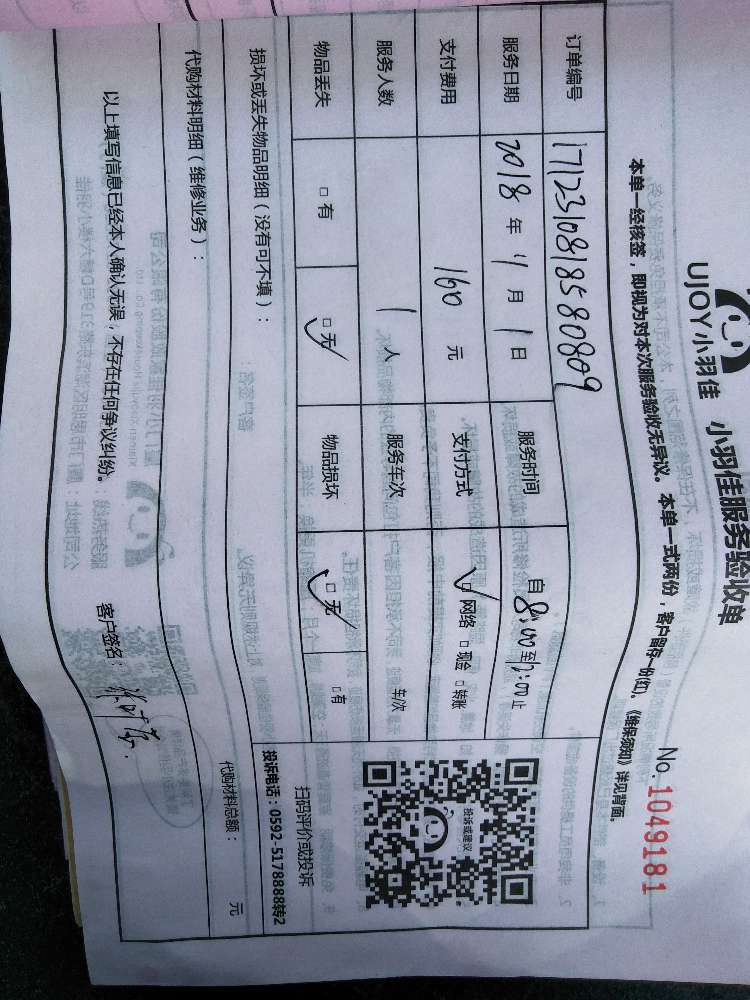 UJOY小羽佳 小羽佳服务验收单
No.1049181
本单一经核签，即视为对本次服务验收无异议。本单一式两份，客户留存一份(红)。《维保须知》详见背面。
订单编号 1712310818580809
服务日期 2018年1月1日 服务时间 自8:00至12:00止
支付费用 160元 支付方式 ☑网络 □现金 □转账
服务人数 1人 服务车次 车次
物品丢失 □有 ☑无 物品损坏 ☑无 □有
损坏或丢失物品明细（没有可不填）：
投诉或建议
扫码评价或投诉
投诉电话：0592-5178888转2
代购材料明细（维修业务）：
代购材料总额： 元
以上填写信息已经本人确认无误，不存在任何争议纠纷。
客户签名：